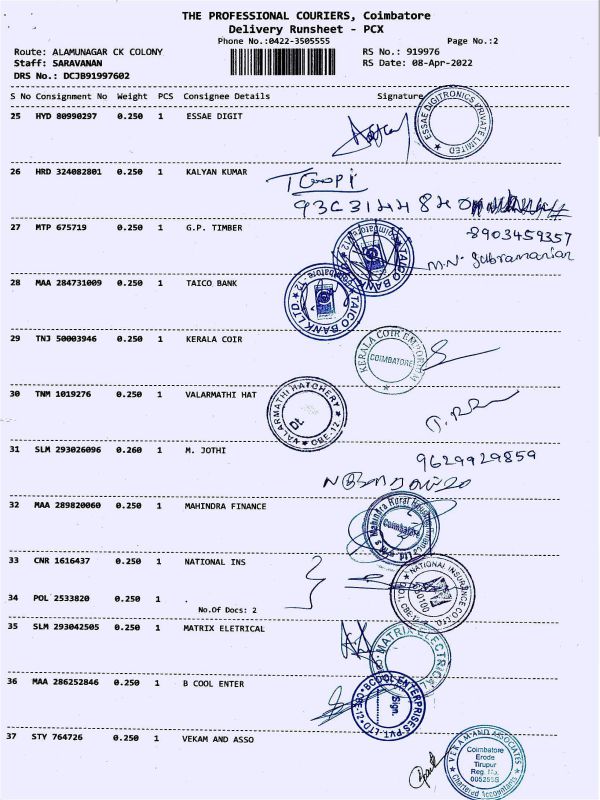 THE PROFESSIONAL COURIERS, Coimbatore
Delivery Runsheet - PCX
Phone No.:0422-3505555
Page No.:2
Route: ALAMUNAGAR CK COLONY
RS No.: 919976
Staff: SARAVANAN
RS Date: 08-Apr-2022
DRS No.: DCJB91997602
S No Consignment No Weight PCS Consignee Details Signature
25 HYD 80990297 0.250 1 ESSAE DIGIT
ESSAE DIGITRONICS PRIVATE LIMITED
26 HRD 324082801 0.250 1 KALYAN KUMAR
T Gopi
27 MTP 675719 0.250 1 G.P. TIMBER
8903459357
M.N. Subramanian
TAICO BANK
28 MAA 284731009 0.250 1 TAICO BANK
TAICO BANK LTD
29 TNJ 50003946 0.250 1 KERALA COIR
KERALA COIR EMPORIUM
COIMBATORE
30 TNM 1019276 0.250 1 VALARMATHI HAT
VALARMATHI HATCHERY
CBE-12
31 SLM 293026096 0.260 1 M. JOTHI
9629929859
32 MAA 289820060 0.250 1 MAHINDRA FINANCE
Mahindra Rural
Coimbatore
33 CNR 1616437 0.250 1 NATIONAL INS
NATIONAL INSURANCE CO.LTD.
34 POL 2533820 0.250 1 .
No.Of Docs: 2
35 SLM 293042505 0.250 1 MATRIX ELETRICAL
MATRIX ELECTRICAL
36 MAA 286252846 0.250 1 B COOL ENTER
BCOOL ENTERPRISES PVT. LTD CBE-12
Sign.
37 STY 764726 0.250 1 VEKAM AND ASSO
VEKAM AND ASSOCIATES
Coimbatore
Erode
Tirupur
Reg. No.
005256S
Chartered Accountants